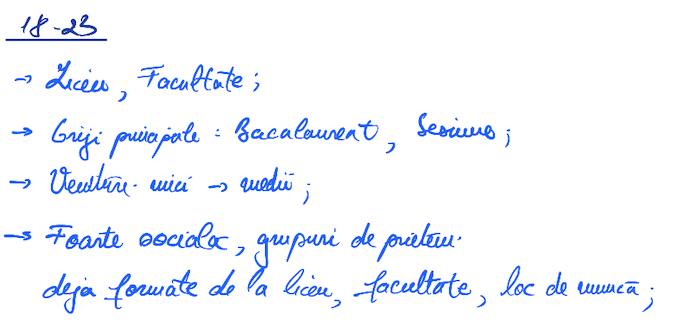 18-23
→ Liceu, Facultate;
→ Griji principale: Bacalaureat, Sesiune;
→ Venituri mici → medii;
→ Foarte sociale, grupuri de prieteni
deja formate de la liceu, facultate, loc de muncă;